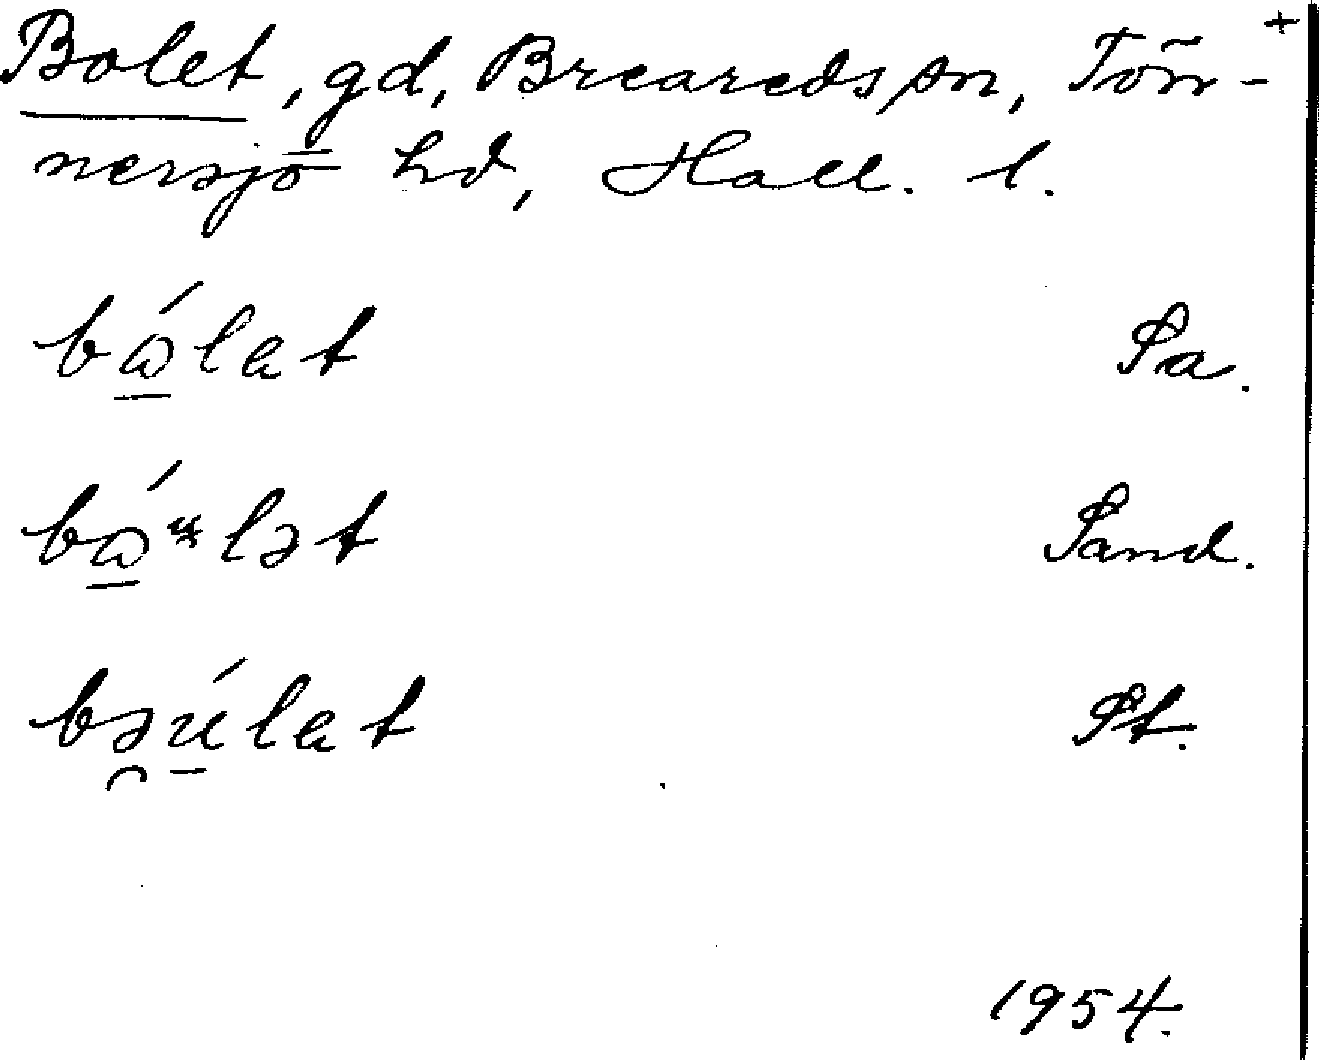 Bolet, gd, Breareds sn, Tön- +
nersjö hd, Hall. l.
bώ̲lat Sa.
bώ̲ᵘlət Sand.
bə̯ú̲lat St.
1954.